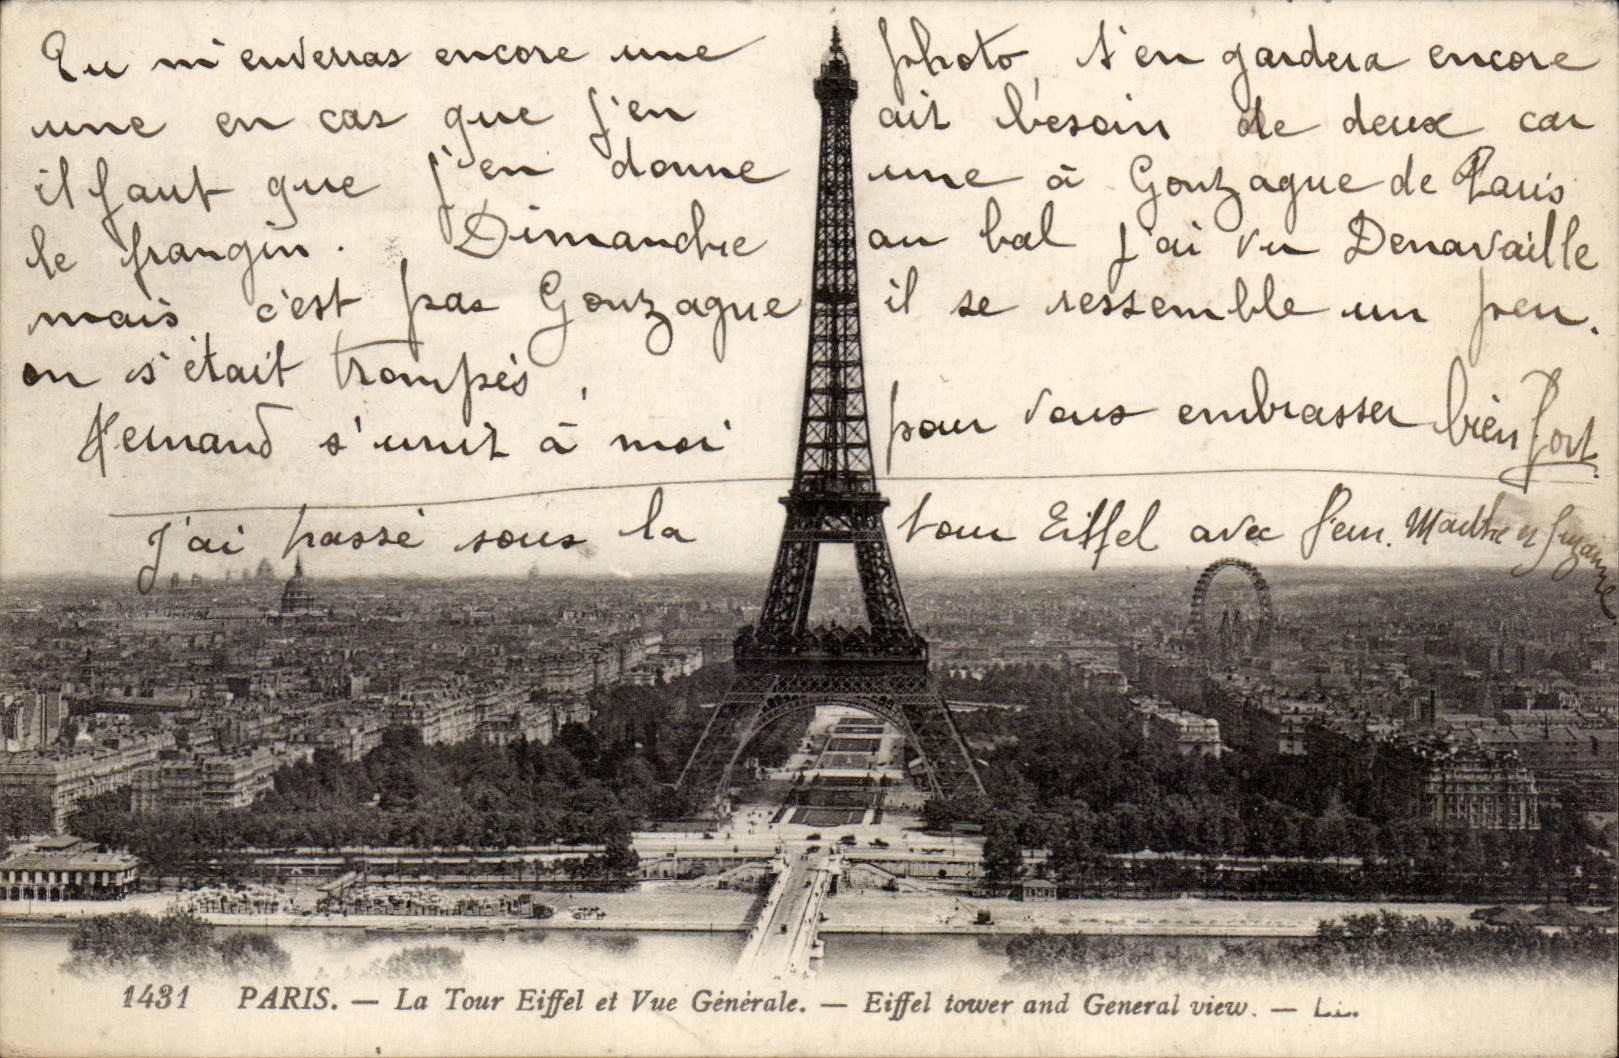 Tu m'enverras encore une photo, t'en gardera encore
une en cas que j'en ait besoin de deux car
il faut que j'en donne une à Gonzague de Paris
le frangin. Dimanche au bal j'ai vu Denavaille
mais c'est pas Gonzague il se ressemble un peu.
on s'était trompés.
Fernand s'unit à moi pour vous embrasser bien fort.
J'ai passé sous la tour Eiffel avec Fern. Marthe et Suzanne
1431 PARIS. — La Tour Eiffel et Vue Générale. — Eiffel tower and General view. — LL.